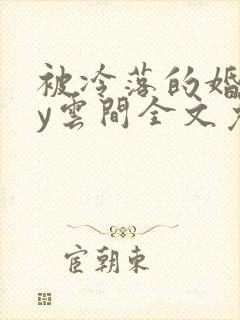 被冷落的婚
y雲間全文
宦朝東